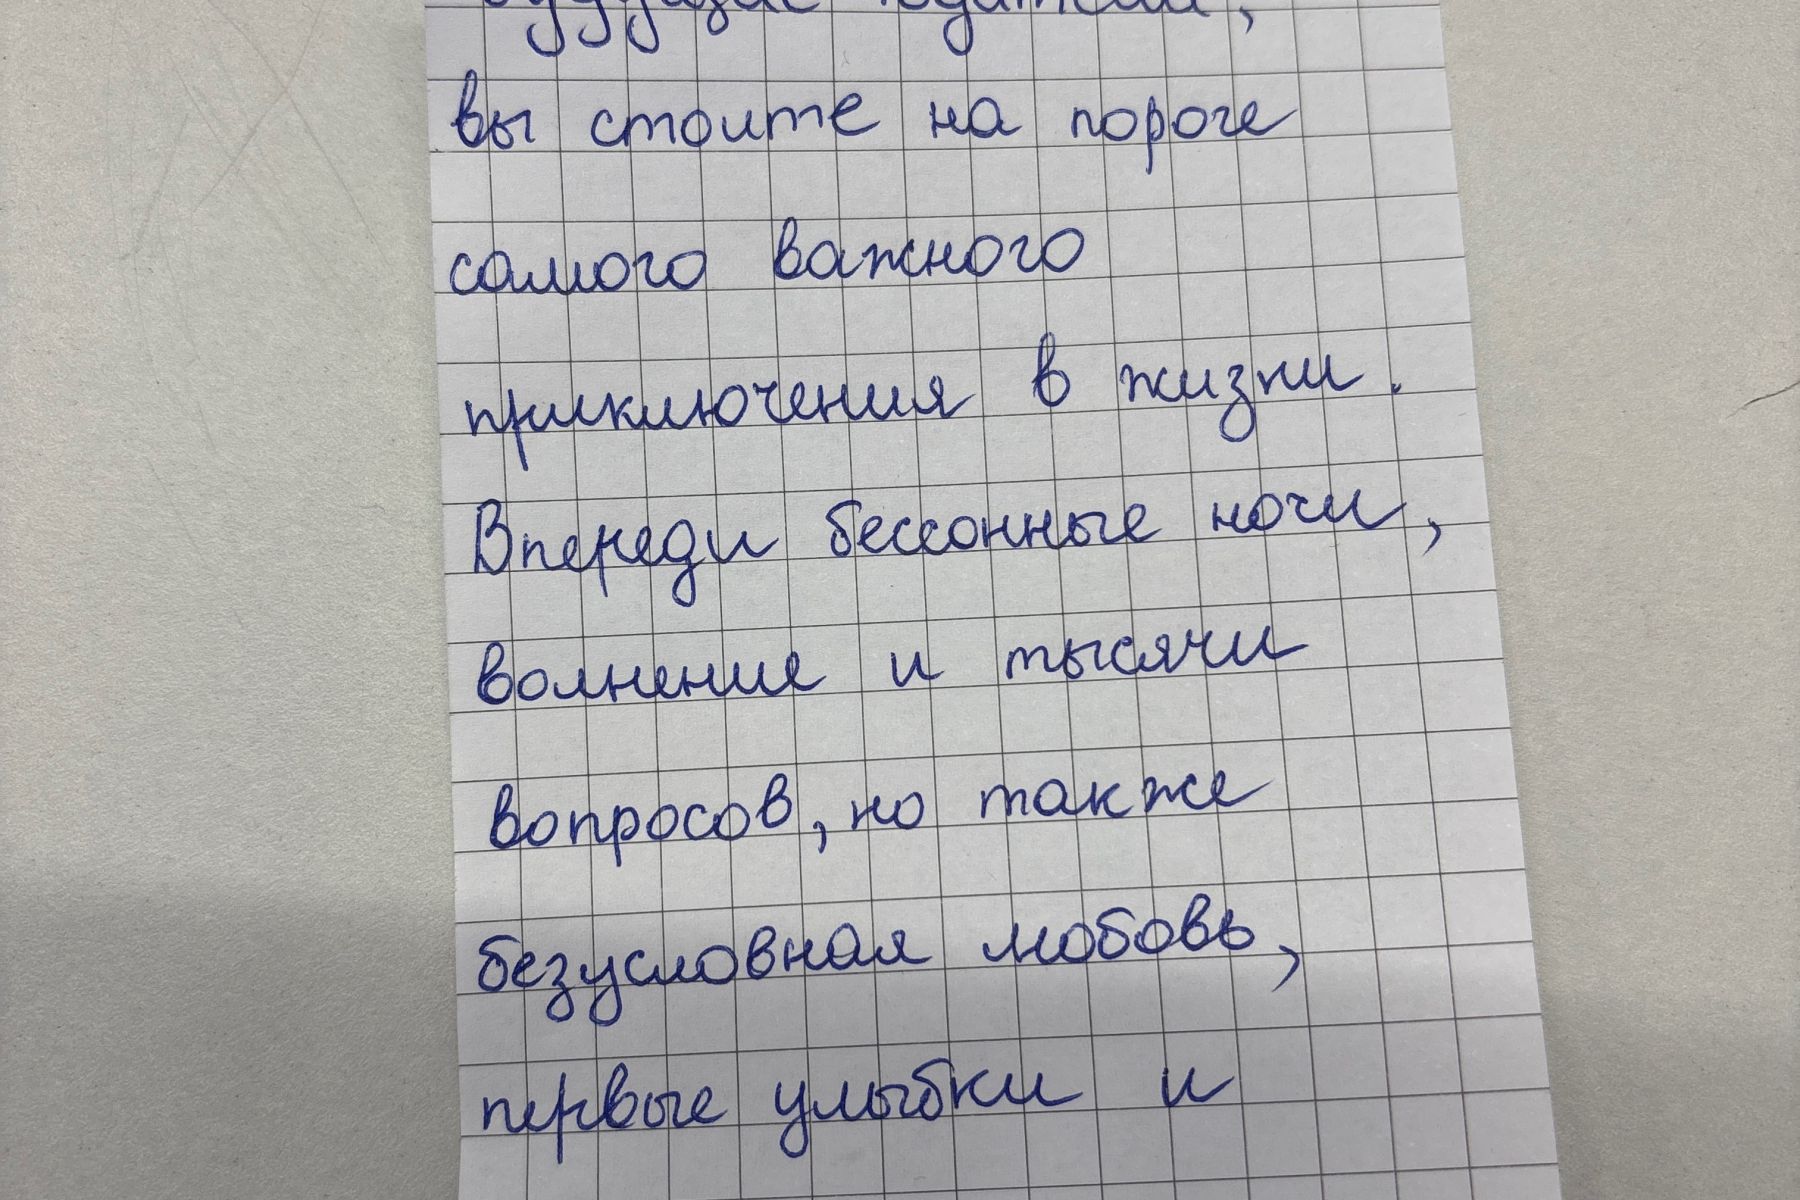 вы стоите на пороге
самого важного
приключения в жизни.
Впереди бессонные ночи,
волнение и тысячи
вопросов, но также
безусловная любовь,
первые улыбки и